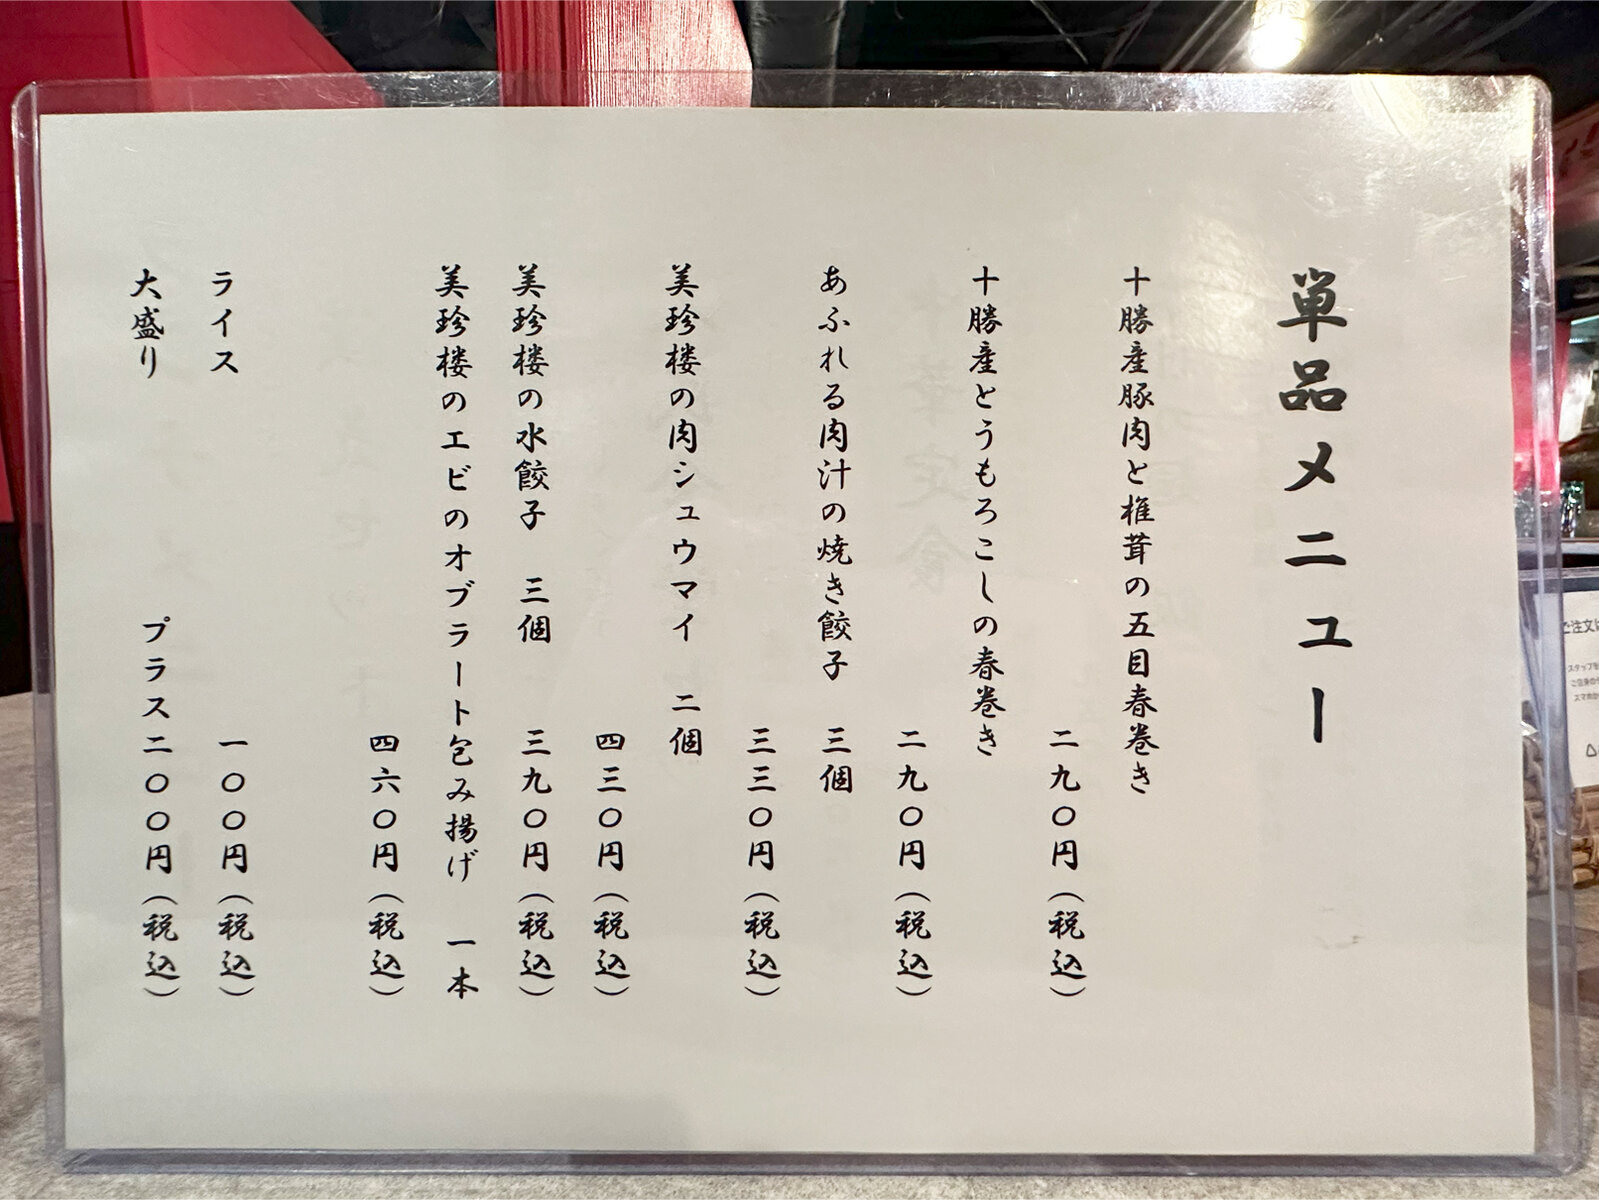 単品メニュー
十勝産豚肉と椎茸の五目春巻き
二九〇円（税込）
十勝産とうもろこしの春巻き
二九〇円（税込）
あふれる肉汁の焼き餃子　三個
三三〇円（税込）
美珍楼の肉シュウマイ　二個
四三〇円（税込）
美珍楼の水餃子　三個　三九〇円（税込）
美珍楼のエビのオブラート包み揚げ　一本
四六〇円（税込）
ライス　一〇〇円（税込）
大盛り　プラス二〇〇円（税込）
ご注文は